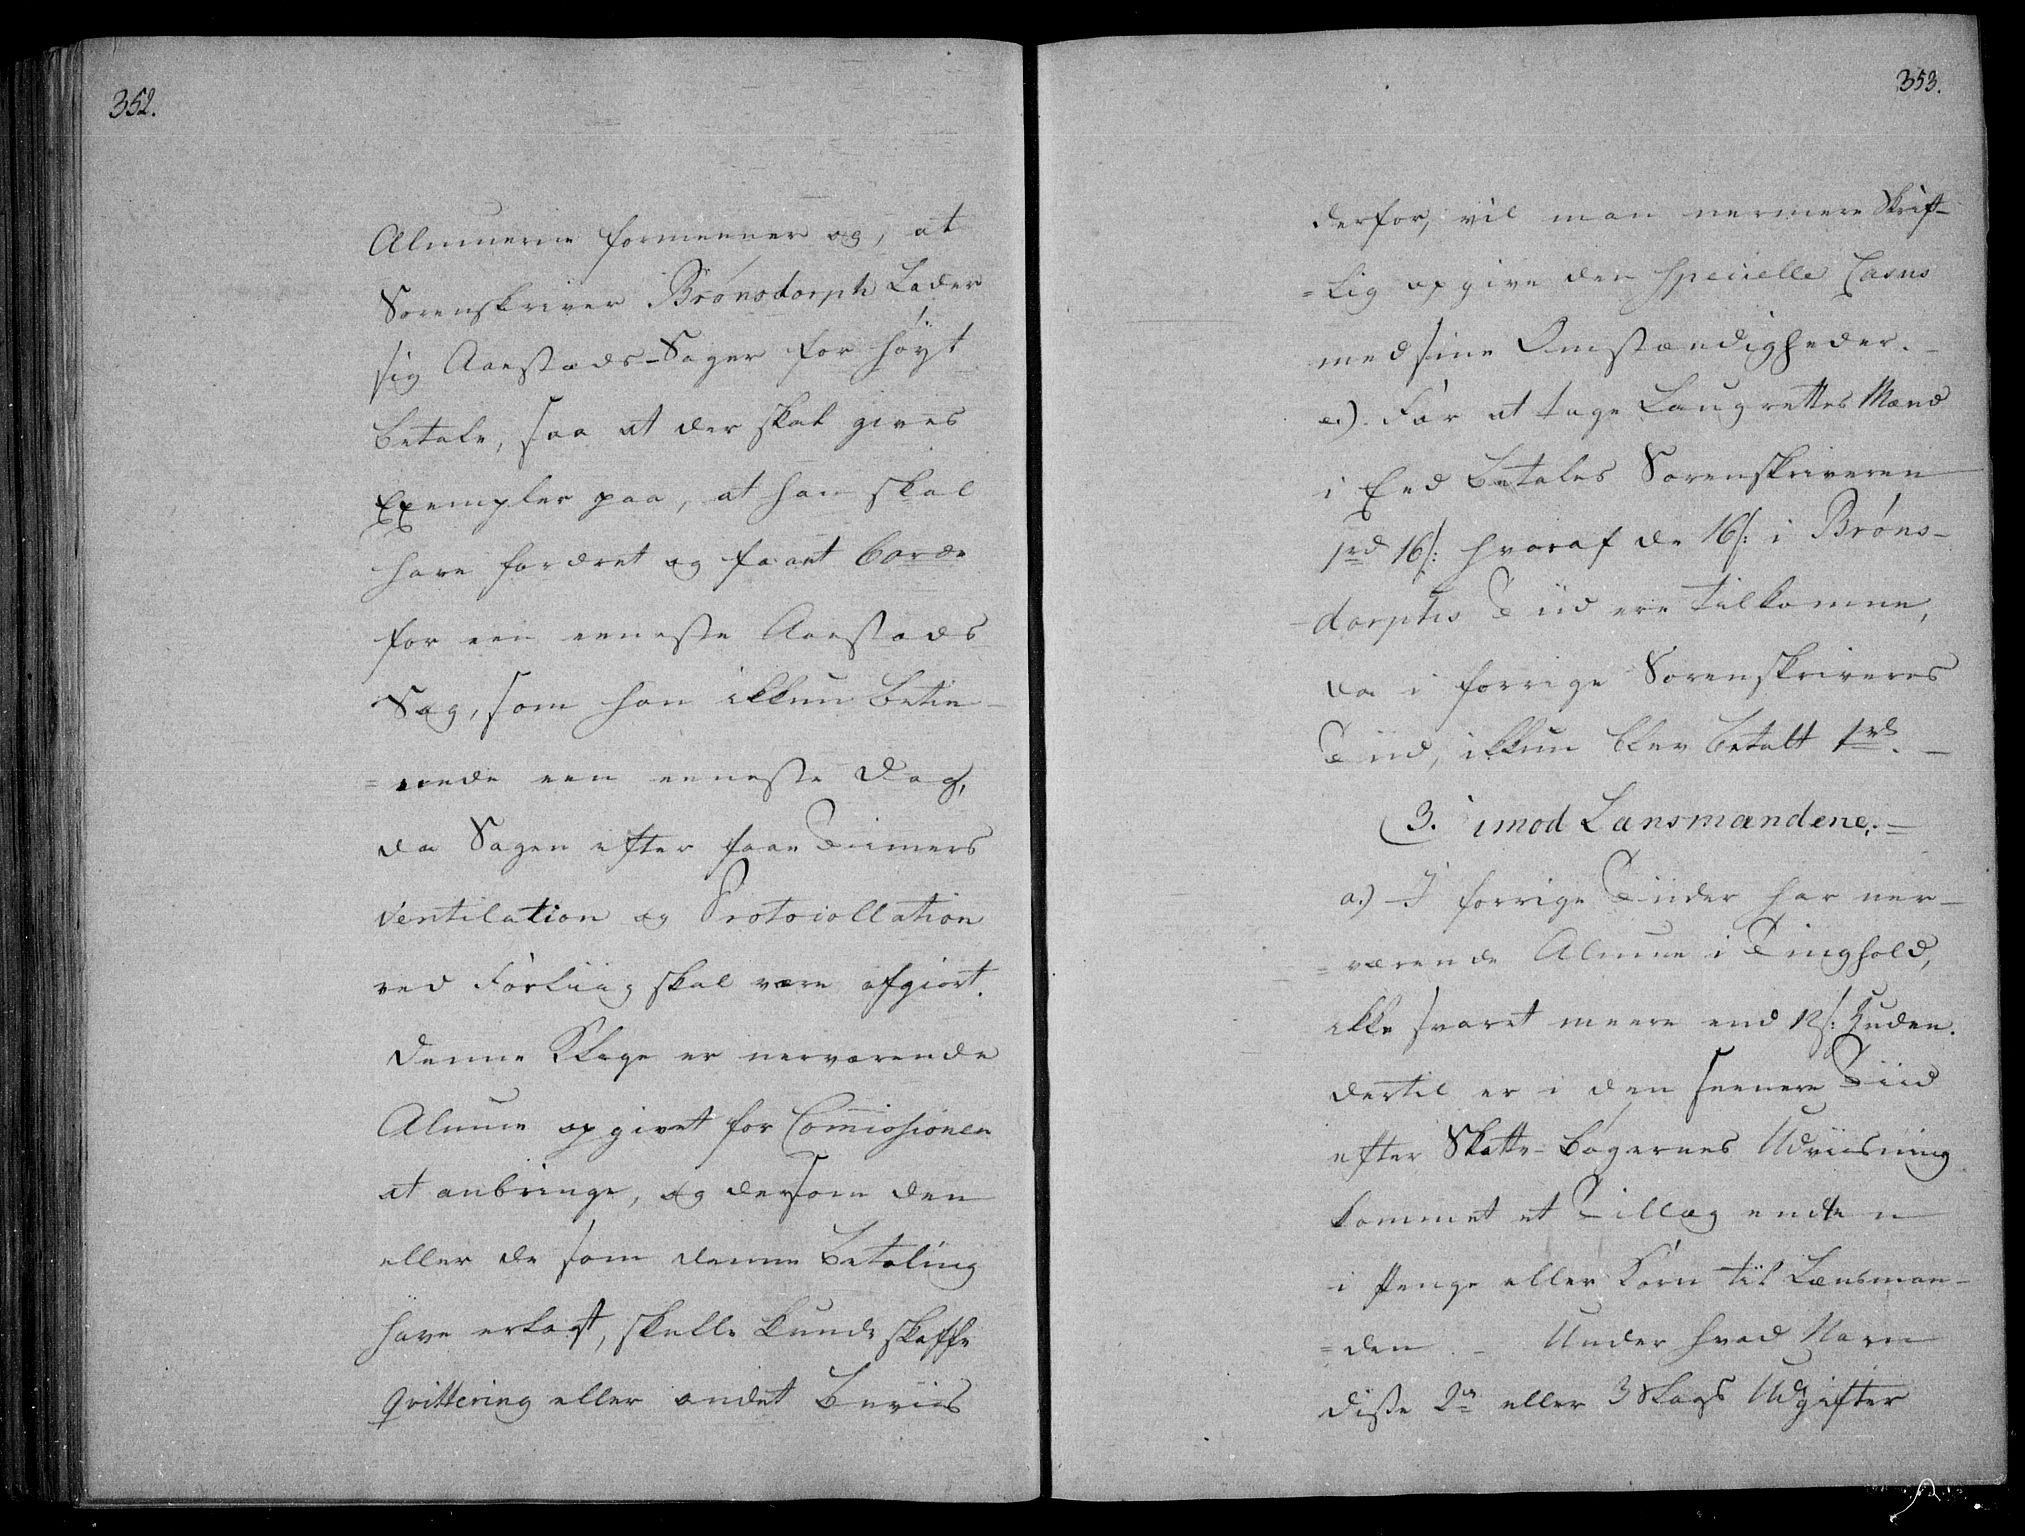 352.
Almuerne formeener og, at
Sorenskriver Brønsdorph Lader
sig Aaestæds-Sager for høyt
betale, saa at der skal gives
Exempler paa, at han skal
have fordret og faaet 60rdr
for een eeneste Aaestæds
Sag, som han ikkun betie-
=nede een eeneste Dag,
da Sagen efter faae Tiimers
Ventilation og Protocollation
ved Forliig skal være afgiort.
Denne Klage er nerværende
Almue opgivet for Commissionen
at anbringe, og dersom den
eller de som denne Betaling
have erlagt, skulle kunde skaffe
Qvittering eller andet Beviis
353.
derfor, vil man nermere Skrift-
=lig opgive den specielle Casus
med sine Omstændigheder. -
e.) For at tage Laugrettes Mænd
i Eed betales Sorenskriveren
1rd 16s: hvoraf de 16s: i Brøns-
-dorphs Tiid ere tilkomne,
da i forrige Sorenskriveres
Tiid, ikkun blev betalt 1rd. -
3. imod Lænsmændene. -
a.) I forrige Tiider har ner-
=værende Almue i Tinghold,
ikke svaret meere end 12s: Huden.
dertil er i den seenere Tiid
efter Skatte-bøgernes Udviisning
kommet et Tillæg enten
i Penge eller Korn til Lænsman-
=den. - Under hvad Navn
disse 2de eller 3 Slags Udgifter